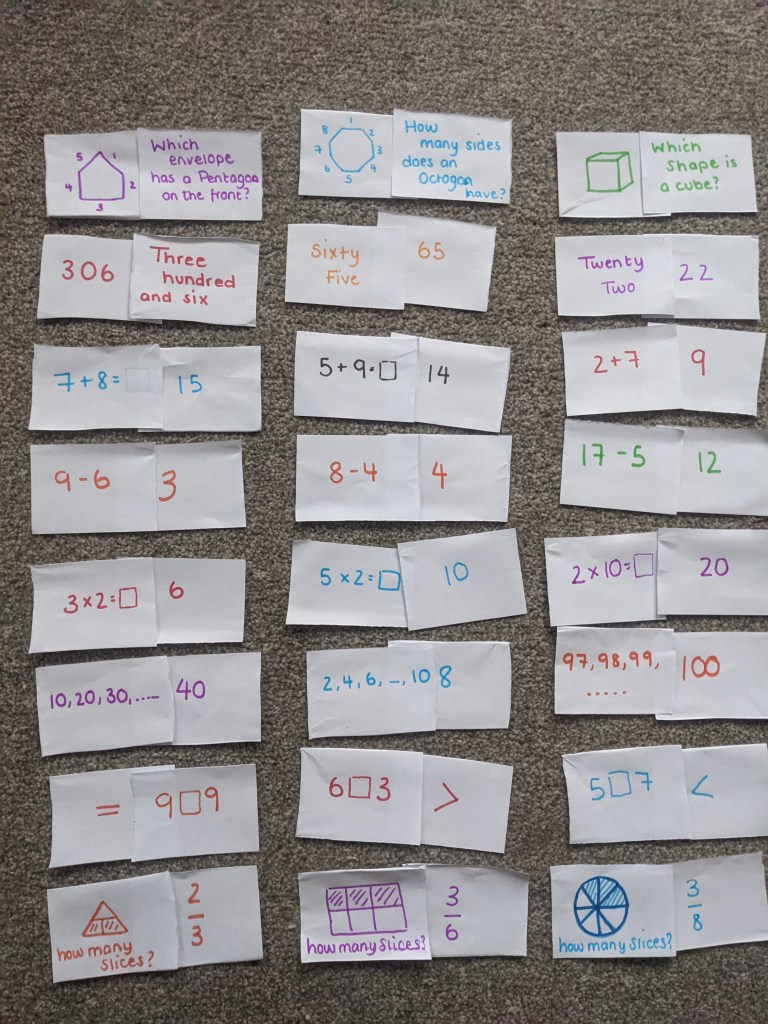 5 1
4 2
3
Which
envelope
has a Pentagon
on the front?
8 1 2
7 3
6 5 4
How
many sides
does an
Octogon
have?
Which
Shape is
a cube?
306
Three
hundred
and six
Sixty
Five
65
Twenty
Two
22
7+8=□
15
5+9=□
14
2+7
9
9-6
3
8-4
4
17-5
12
3×2=□
6
5×2=□
10
2×10=□
20
10,20,30,.....
40
2,4,6,_,10
8
97,98,99,
.....
100
=
9□9
6□3
>
5□7
<
how many
slices?
2
3
how many slices?
3
6
how many slices?
3
8